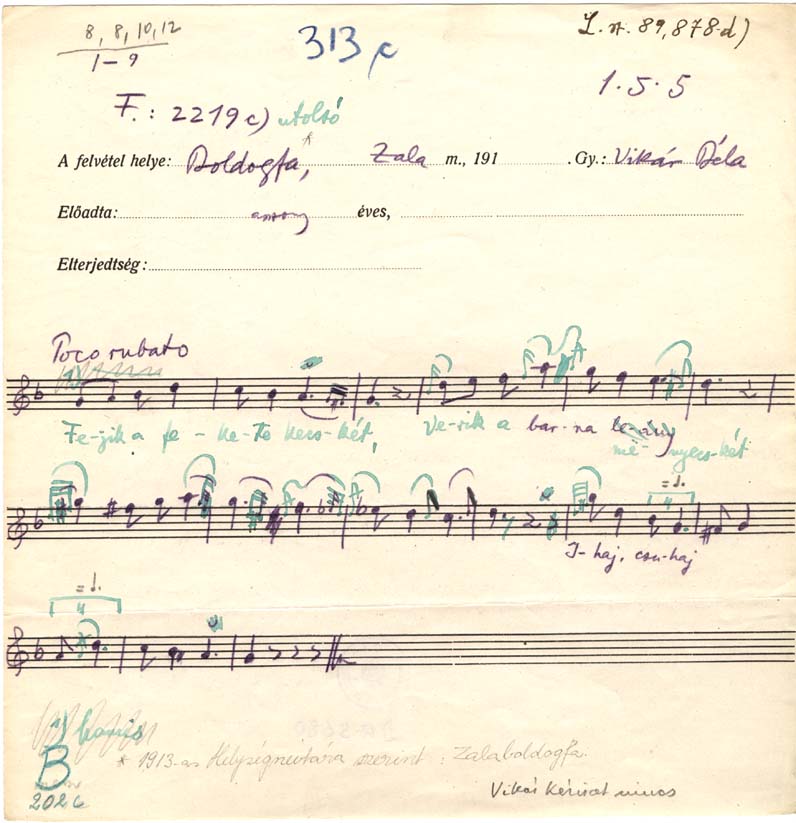 8, 8, 10, 12
1-9
313
89, 878-d)
1.5.5
F.: 2219 c) utolsó
A felvétel helye: Boldogfa,* Zala m., 191 . Gy.: Vikár Béla
Előadta: asszony éves,
Elterjedtség:
Poco rubato
Fe-jik a fe-ke-te kecs-két, Ve-rik a bar-na le-ány
me nyecs-két
= ♩.
4
I-haj, csu-haj
= ♩.
4
1)
B
2026
* 1913-as Helységnévtára szerint: Zalaboldogfa.
Vikár nincs